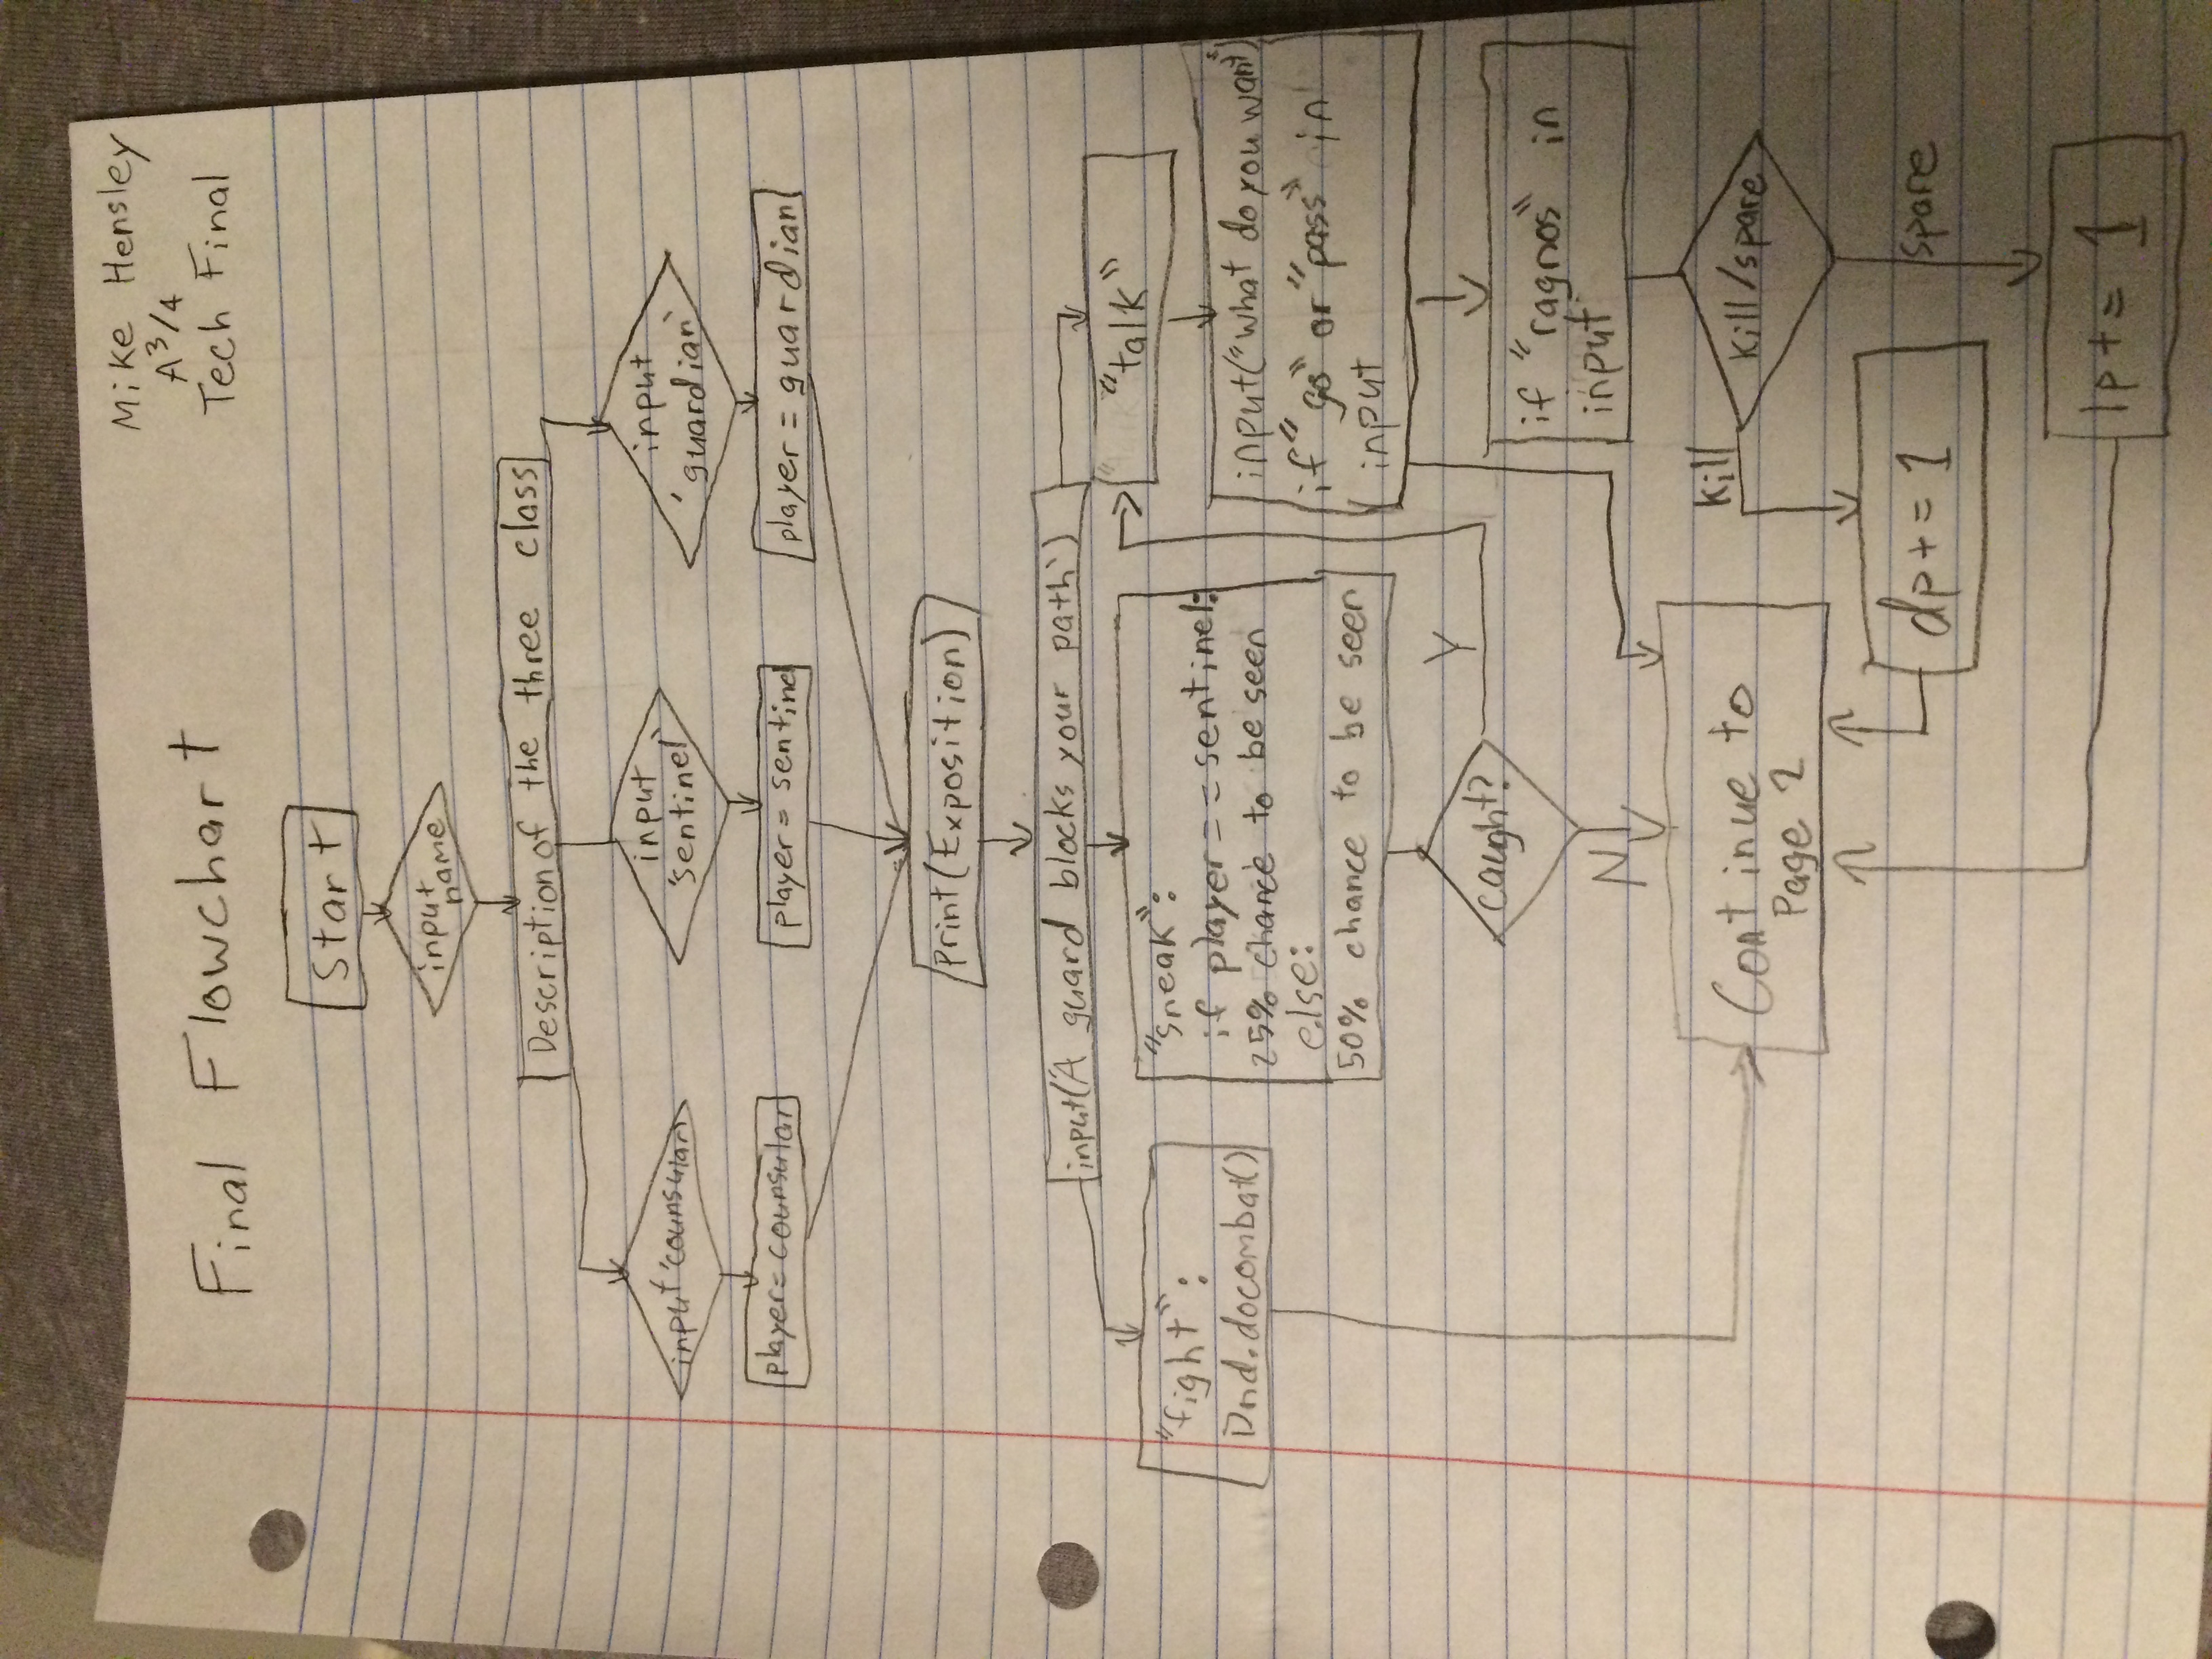 Mike Hensley
A3/4
Tech Final
Final Flowchart
Start
input
name
Description of the three class
input 'counsular'
input
'sentinel'
input
'guardian'
player = counsular
player = sentinel
player = guardian
print(Exposition)
input('A guard blocks your path')
"fight":
Dnd.docombat()
"sneak":
if player == sentinel:
25% chance to be seen
else:
50% chance to be seen
"talk"
input("what do you want")
if "go" or "pass" in
input
caught?
Y
N
if "ragnos" in
input
Continue to
Page 2
kill/spare
kill
spare
dp += 1
lp += 1